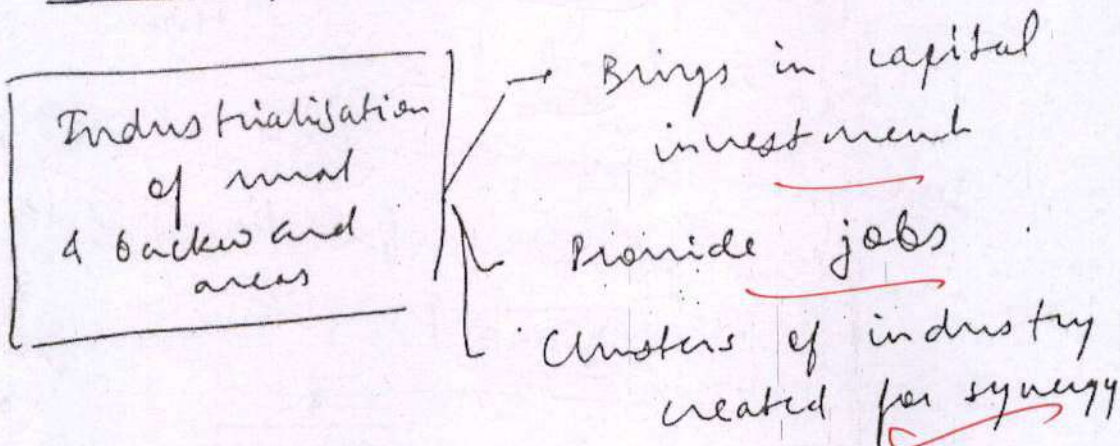 Industrialisation
of rural
& backward
areas
Brings in capital
investment
Provide jobs
Clusters of industry
created for synergy